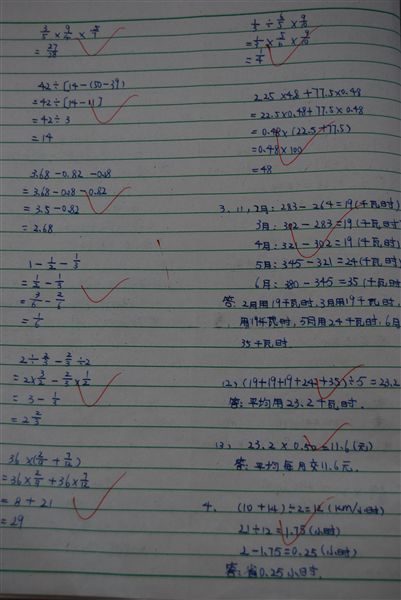 3/5 × 9/4 × 5/7
= 27/28
42÷[14-(50-39)
=42÷[14-11]
=42÷3
=14
3.68-0.82-0.18
=3.68-0.18-0.82
=3.5-0.82
=2.68
1-1/2-1/3
=1/2-1/3
=3/6-2/6
=1/6
2÷2/3-2/3÷2
=2×3/2-2/3×1/2
=3-1/3
=2 2/3
36×(2/9+7/12)
=36×2/9+36×7/12
=8+21
=29
=1/4
2.25×48+77.5×0.48
=22.5×0.48+77.5×0.48
=0.48×(22.5+77.5)
=0.48×100
=48
3、1),2月:283-264=19(千瓦时)
3月:302-283=19(千瓦时)
4月:321-302=19(千瓦时)
5月:345-321=24(千瓦时)
6月:380-345=35(千瓦时)
答:2月用19千瓦时,3月用19千瓦时,
用19千瓦时,5月用24千瓦时,6月
35千瓦时.
(2)(19+19+19+24+35)÷5=23.2
答:平均用23.2千瓦时.
(3) 23.2×0.50=11.6(元)
答:平均每月交11.6元.
4、(10+14)÷2=12(km/小时)
21÷12=1.75(小时)
2-1.75=0.25(小时)
答:省0.25小时.